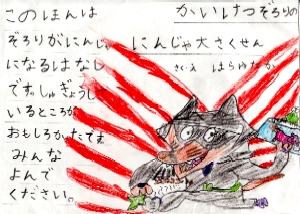 かいけつぞろりの
にんじゃ大さくせん
さく・え はらゆたか
このほんは
ぞろりがにんじゃ
になるはなし
です。しゅぎょうし
いるところが
おもしろかったです。
みんな
よんで
ください。